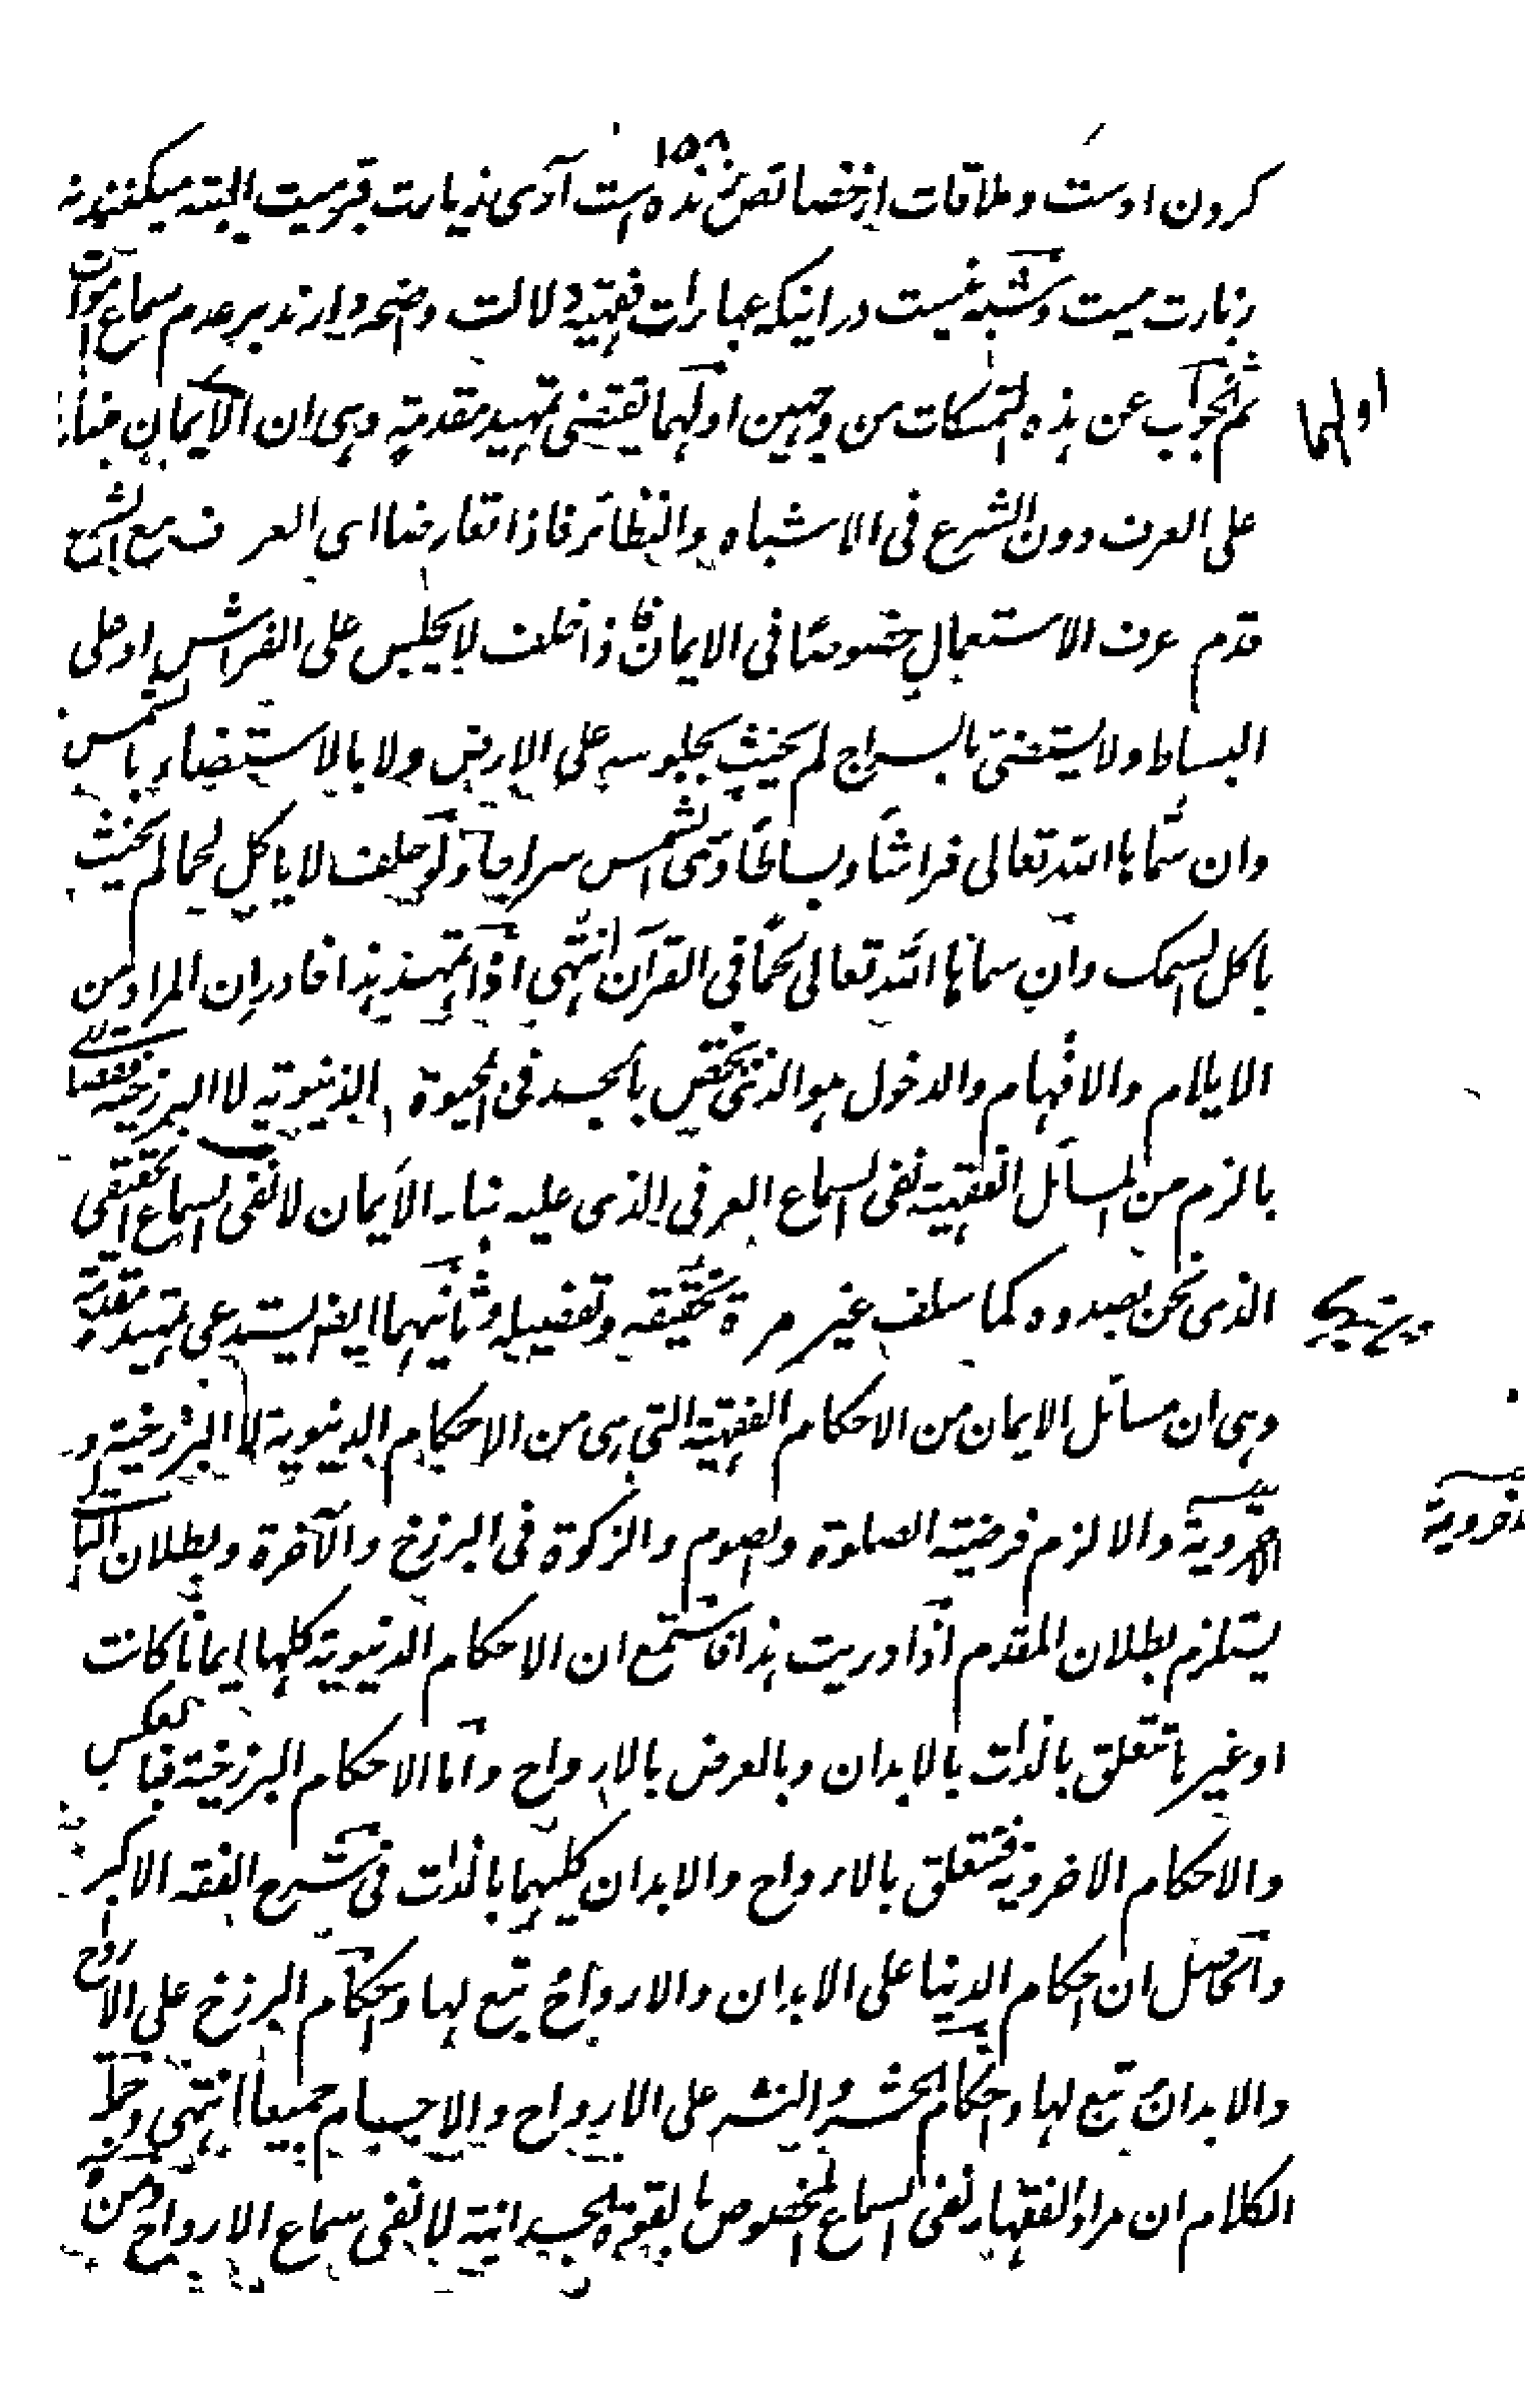 ١٥٨
کردن اوست و ملاقات از خصائص زنده است آدمی زیارت قبر میت البته میکنند نه
زیارت میت و شبه نیست در اینکه عبارات فقهیه دلالت واضحه دارند بر عدم سماع اموات
ثم الجواب عن هذه التمسکات من وجهین اولهما یقتضی تمهید مقدمة وهی ان الایمان مبناء
اولهما
علی العرف دون الشرع فی الاشباه والنظائر فاذا تعارضا ای العرف مع الشرع
قدم عرف الاستعمال خصوصًا فی الایمان فاذا حلف لا یجلس علی الفراش او علی
البساط ولا یستضئ بالسراج لم یحنث بجلوسه علی الارض ولا بالاستضاء بالشمس
وان سماها الله تعالی فراشًا وبساطًا وسمی الشمس سراجا ولو حلف لا یاکل لحما لم یحنث
باکل السمک وان سماها الله تعالی لحمًا فی القرآن انتهی اذا تمهد هذا فادر ان المراد من
الایلام والافهام والدخول هو الذی یختص بالجسد فی الحیوة الدنیویة لا البرزخیة فقصا
بالزم من المسائل الفقهیة نفی السماع العرفی الذی علیه بناء الأیمان لا نفی السماع الحقیقی
الذی نحن بصدده کما سلف غیر مرة تحقیقه وتفصیله وثانیهما ایضا یستدعی تمهید مقدمة
وهی ان مسائل الایمان من الاحکام الفقهیة التی هی من الاحکام الدنیویة لا البرزخیة و
الاخرویة والا لزم فرضیة الصلوة والصوم والزکوة فی البرزخ والآخرة وبطلان التالی
الاخرویة
یستلزم بطلان المقدم اذا دریت هذا فاستمع ان الاحکام الدنیویة کلها ایمانا کانت
او غیرها تتعلق بالذات بالابدان وبالعرض بالارواح واما الاحکام البرزخیة فبالعکس
والاحکام الاخرویة فتتعلق بالارواح والابدان کلیهما بالذات فی شرح الفقه الاکبر
والحاصل ان احکام الدنیا علی الابدان والارواح تبع لها واحکام البرزخ علی الارواح
والابدان تبع لها واحکام الحشر والنشر علی الارواح والاجسام جمیعا انتهی وخلاصة
الکلام ان مراد الفقهاء نفی السماع المخصوص بالقوة الجسدانیة لا نفی سماع الارواح ومن